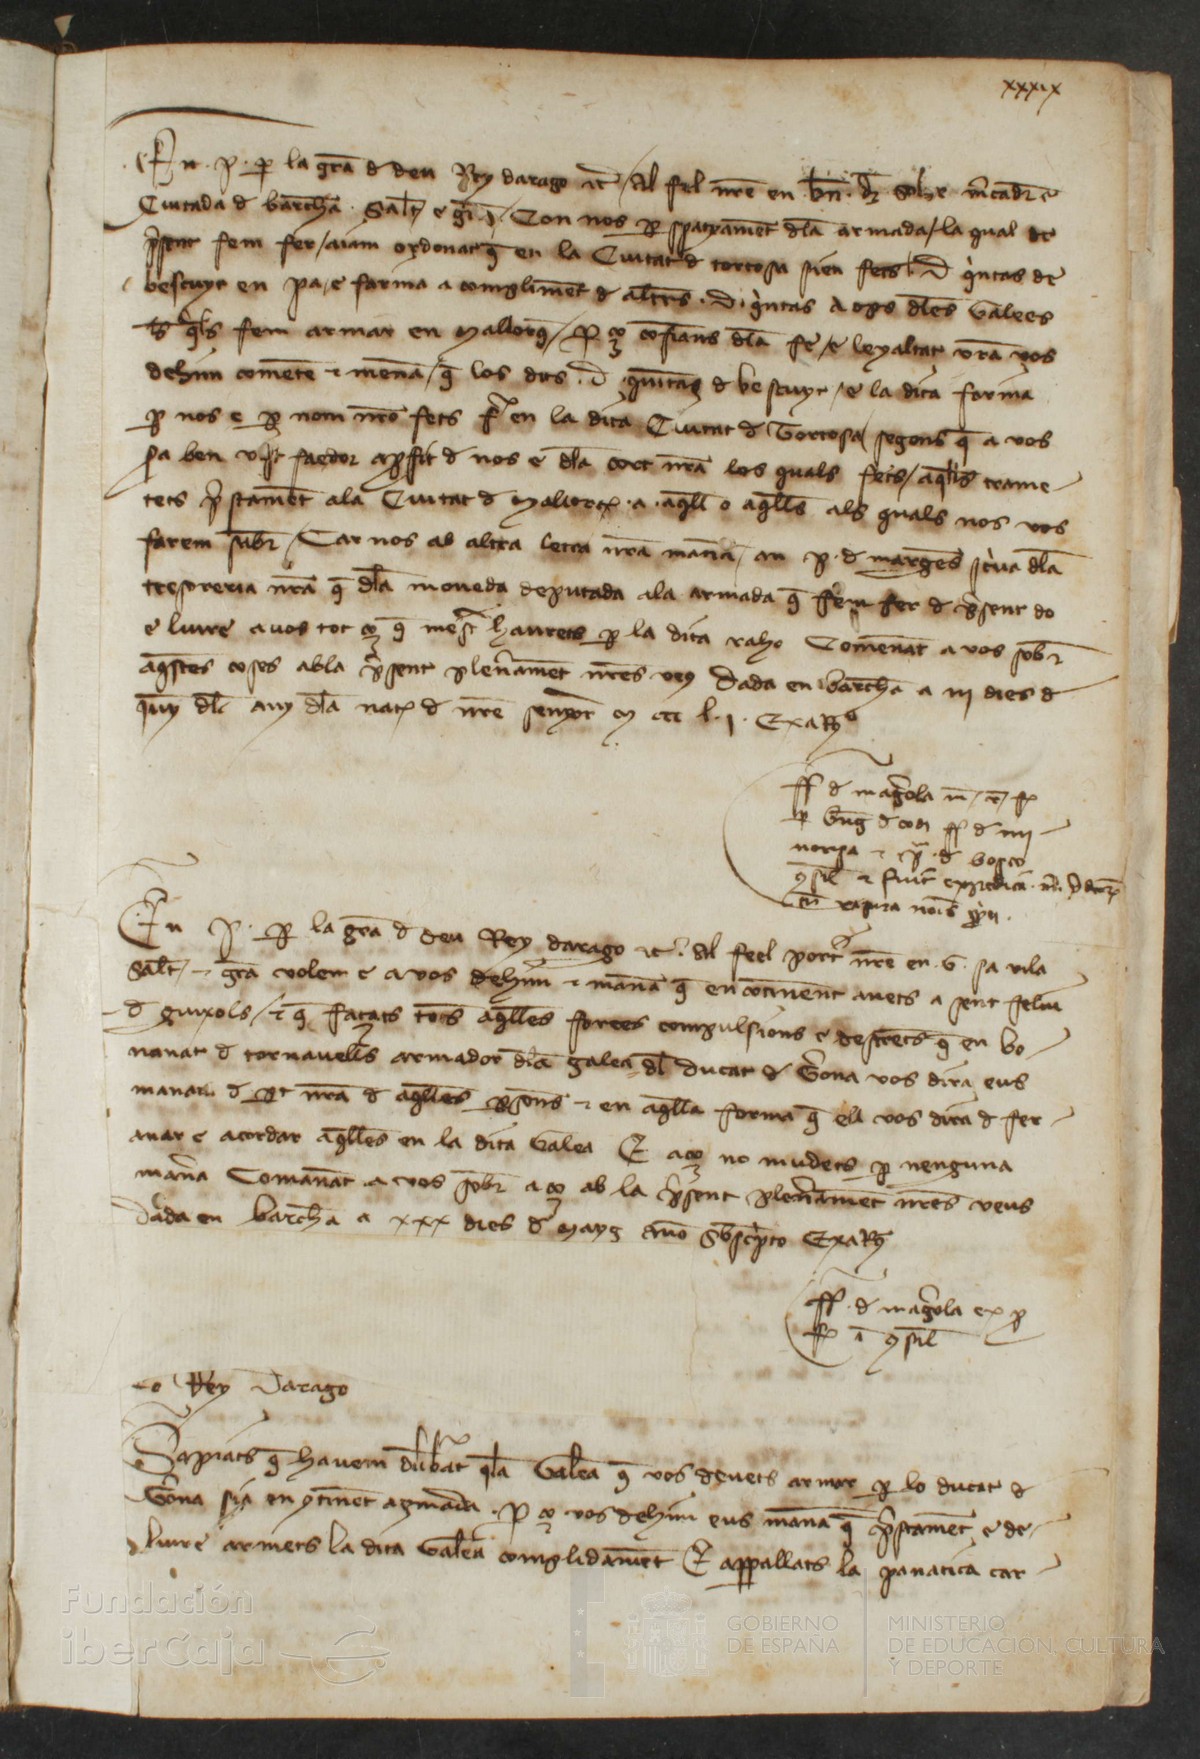 xxxix
En .P. per la gra de deu Rey darago etc. Al feel nre en bn. de
Ciutada de barchna Salt e gra. Con nos per spatxament dla armada la qual de
psent fem fer aiam ordonat q en la Ciutat de tortosa sien fets .D. quintas de
bescuyt en pa e farina a compliment de altres .D. quintas a ops dles Galees
les qls fem armar en Mallorq per ço confians dla fe e leyaltat vra vos
dehim cometem e manam q los dits .D. quintas de bescuyt e la dita farina
per nos e per nom nre fets fer en la dita Ciutat de Tortosa segons q a vos
sa ben vist faedor a profit de nos e dla cort nra los quals fets aqlls trame
tets pstament a la Ciutat de Mallorq a aqll o aqlls als quals nos vos
farem saber Car nos ab altra letra nra manam an P. de marges scriva dla
tresoreria nra q dla moneda deputada a la armada q fem fer de psent do
e liure a vos tot ço q mester haurets per la dita raho Comenant a vos sobr
aqstes coses ab la psent plenament nres veus Dada en barchna a iii dies de
juny dl any dla nat de nre senyor M CCC L.I. Exa R
ff de magrola
ff de mi
norisa e de bosco
consil e fuit expedita
En P. per la gra de deu Rey darago etc. Al feel porter nre en .G. sa vila
Salt e gra volem e a vos dehim e manam q en continent anets a sent feliu
de guixols e q façats tots aqlles forces compulsions e destrets q en bo
nanat de tornavells armador dla galea dl Ducat de Gerona vos dira eus
manara de part nra de aqlles persones e en aqlla forma q ell vos dira de fer
anar e acordar aqlles en la dita Galea E aço no mudets per nenguna
manera Comanant a vos sobr aço ab la psent plenament nres veus
Dada en barchna a xxx dies de Mayg anno subscripto Exa R
ff. de magrola ex p
R i consil
Lo Rey Darago
Sapiats q havem deliberat q la Galea q vos devets armar per lo ducat de
Gerona sia en continent armada. Per ço vos dehim eus manam q pstament e de
liure armets la dita Galea complidament E apparellats la panatica car
Fundación
iberCaja
GOBIERNO
DE ESPAÑA
MINISTERIO
DE EDUCACIÓN, CULTURA
Y DEPORTE